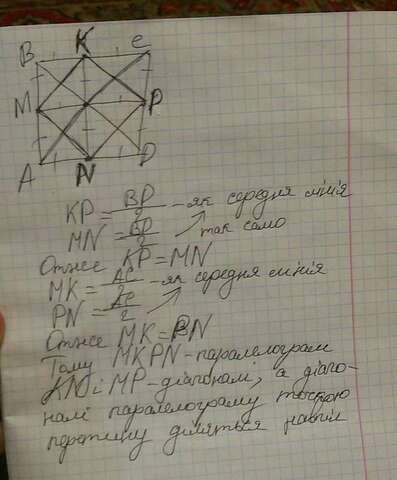 B K C
M P
A N D
KP = BP/2 - як середня лінія
MN = BP/2 так само
Отже KP = MN
MK = AC/2 - як середня лінія
PN = AC/2
Отже MK = PN
Тому MKPN - паралелограм
KN і MP - діагоналі, а діаго-
налі паралелограму точкою
перетину діляться навпіл